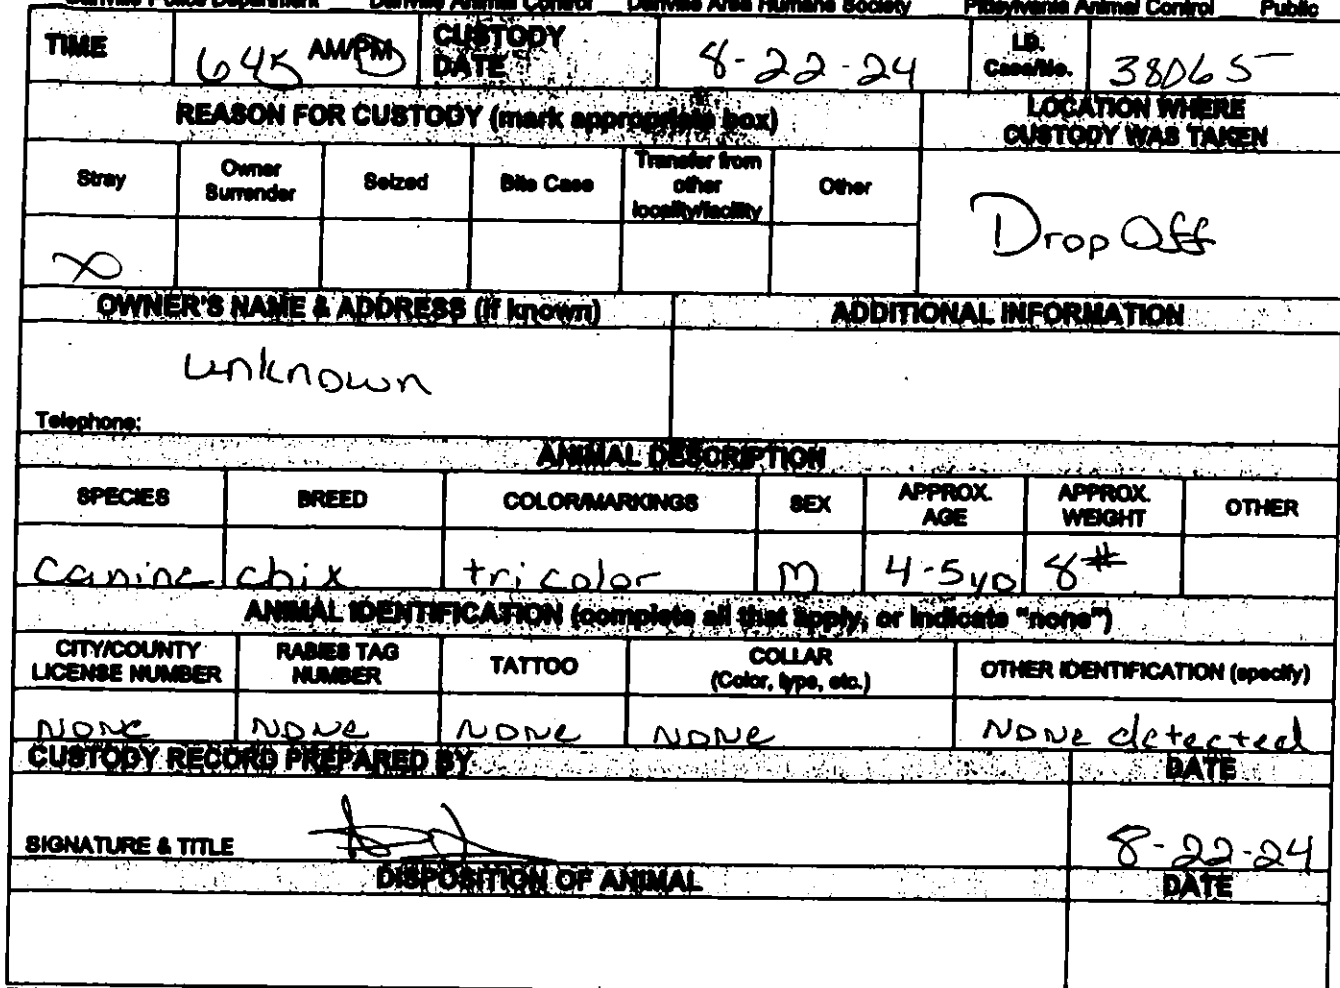 Danville Police Department Danville Animal Control Danville Area Humane Society Pittsylvania Animal Control Public
TIME 645 AM/PM CUSTODY DATE 8-22-24 I.D. Case/No. 38065
REASON FOR CUSTODY (mark appropriate box) LOCATION WHERE CUSTODY WAS TAKEN
Stray Owner Surrender Seized Bite Case Transfer from other locality/facility Other
X
Drop Off
OWNER'S NAME & ADDRESS (if known) ADDITIONAL INFORMATION
unknown
Telephone:
ANIMAL DESCRIPTION
SPECIES BREED COLOR/MARKINGS SEX APPROX. AGE APPROX. WEIGHT OTHER
Canine chix tri color M 4-5yo 8#
ANIMAL IDENTIFICATION (complete all that apply, or indicate "none")
CITY/COUNTY LICENSE NUMBER RABIES TAG NUMBER TATTOO COLLAR (Color, type, etc.) OTHER IDENTIFICATION (specify)
None None None None None detected
CUSTODY RECORD PREPARED BY DATE
SIGNATURE & TITLE 8-22-24
DISPOSITION OF ANIMAL DATE